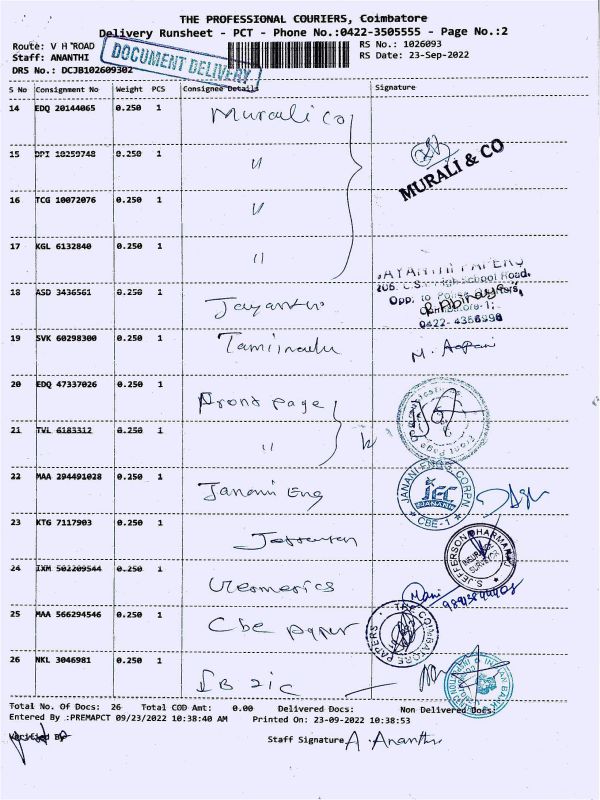 THE PROFESSIONAL COURIERS, Coimbatore
Delivery Runsheet - PCT - Phone No.:0422-3505555 - Page No.:2
Route: V H ROAD
RS No.: 1026093
Staff: ANANTHI
RS Date: 23-Sep-2022
DRS No.: DCJB102609302
DOCUMENT DELIVERY
S No Consignment No Weight PCS Consignee Details Signature
14 EDQ 20144065 0.250 1 Murali Co
15 DPI 10259748 0.250 1 "
MURALI & CO
16 TCG 10072076 0.250 1 "
17 KGL 6132840 0.250 1 "
JAYANTHI PAPERS
206, C.S.I. High School Road,
18 ASD 3436561 0.250 1 Jayanthi
Opp. to Police Quarters,
R. Abinaya
Coimbatore-1.
0422-4356998
19 SVK 60298300 0.250 1 Tamilnadu
M.
20 EDQ 47337026 0.250 1 Front page
Front Page
21 TVL 6183312 0.250 1 "
22 MAA 294491028 0.250 1 Janani Eng
JANANI ENGG CORPN
JEC
JANANI
CBE-1
23 KTG 7117903 0.250 1
S.JEFFERSON DHARMARAJ
INSURANCE
SURVEYOR
24 IXM 502209544 0.250 1
Mani
25 MAA 566294546 0.250 1 Cbe paper
TRAY COIMBATORE PAPERS
26 NKL 3046981 0.250 1 IB ZIC
INDIAN BANK
Total No. Of Docs: 26 Total COD Amt: 0.00 Delivered Docs: Non Delivered Docs:
Entered By :PREMAPCT 09/23/2022 10:38:40 AM Printed On: 23-09-2022 10:38:53
Verified By
Staff Signature A. Ananthi